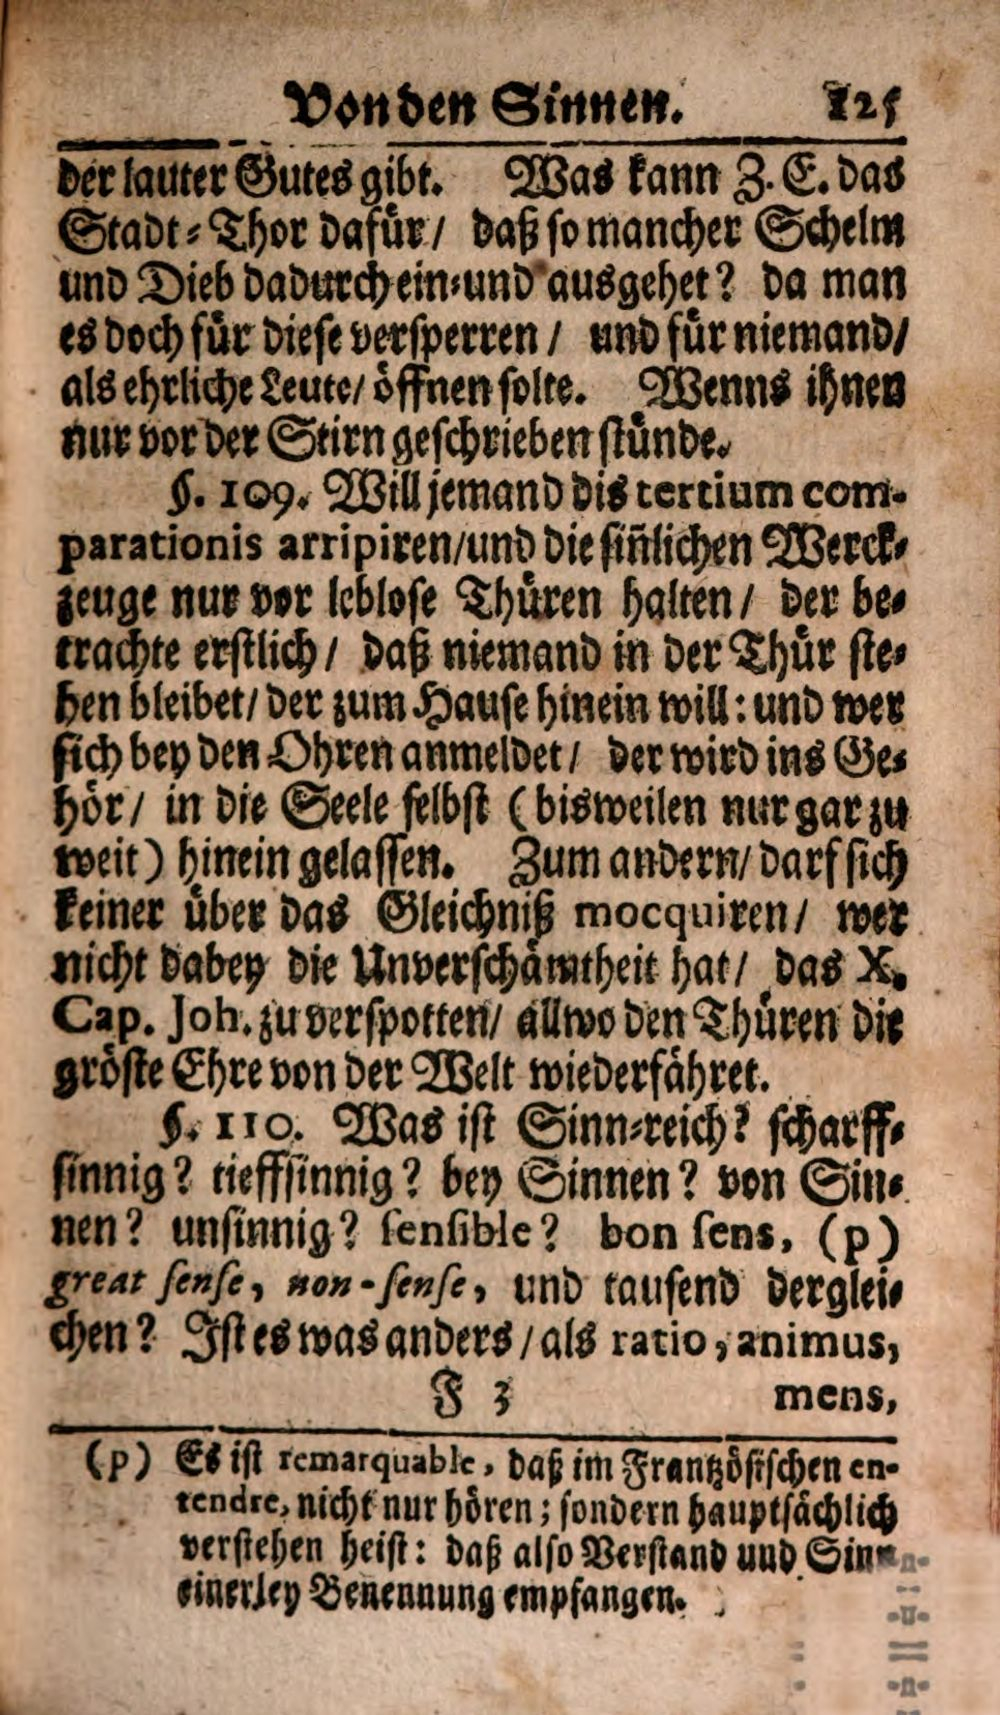 Von den Sinnen. 125
der lauter Gutes gibt. Was kann Z. E. das
Stadt-Thor dafür/ daß so mancher Schelm
und Dieb dadurch ein-und ausgehet? da man
es doch für diese versperren / und für niemand/
als ehrliche Leute/ öffnen solte. Wenns ihnen
nur vor der Stirn geschrieben stünde.
§. 109. Will jemand dis tertium com-
parationis arripiren/und die siñlichen Werck-
zeuge nur vor leblose Thüren halten/ der be-
trachte erstlich/ daß niemand in der Thür ste-
hen bleibet/ der zum Hause hinein will: und wer
sich bey den Ohren anmeldet/ der wird ins Ge-
hör/ in die Seele selbst (bisweilen nur gar zu
weit) hinein gelassen. Zum andern/ darf sich
keiner über das Gleichniß mocquiren/ wer
nicht dabey die Unverschämtheit hat/ das X.
Cap. Joh. zu verspotten/ allwo den Thüren die
gröste Ehre von der Welt wiederfähret.
§. 110. Was ist Sinn-reich? scharff-
sinnig? tieffsinnig? bey Sinnen? von Sin-
nen? unsinnig? sensible? bon sens, (p)
great sense, non-sense, und tausend derglei-
chen? Ist es was anders/ als ratio, animus,
F 3 mens,
(p) Es ist remarquable, daß im Frantzösischen en-
tendre, nicht nur hören; sondern hauptsächlich
verstehen heist: daß also Verstand und Sinn
einerley Benennung empfangen.